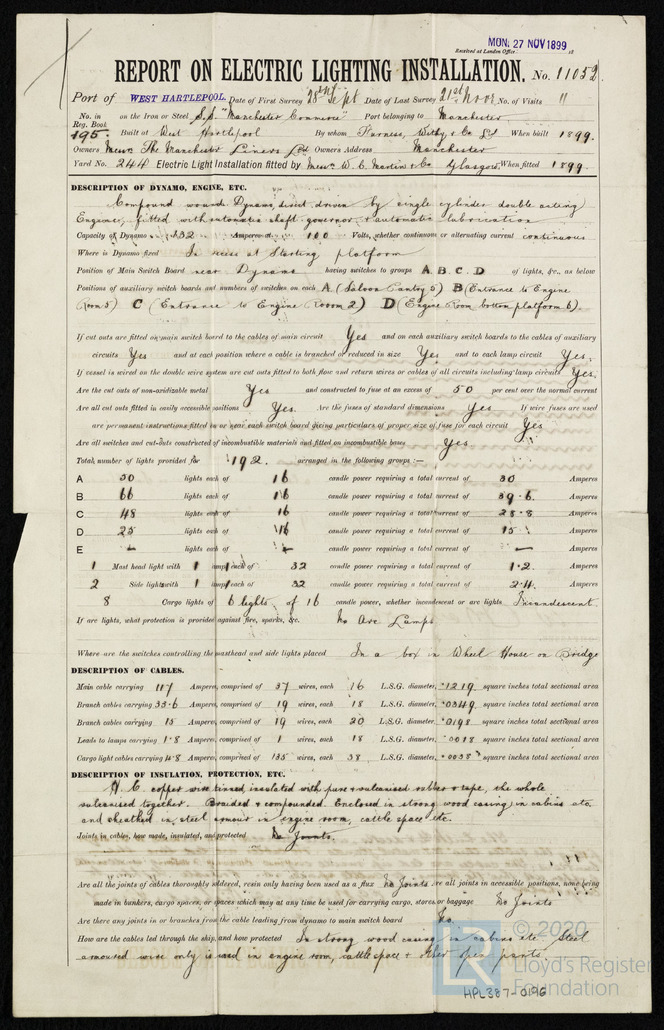 MON. 27 NOV 1899
Received at London Office 18
REPORT ON ELECTRIC LIGHTING INSTALLATION. No. 11052
Port of WEST HARTLEPOOL. Date of First Survey 28th Sept Date of Last Survey 21st Novr No. of Visits 11
No. in on the Iron or Steel S.S. "Manchester Commerce" Port belonging to Manchester
Reg. Book
195. Built at West Hartlepool By whom Furness, Withy & Co Ld When built 1899.
Owners Messrs The Manchester Liners Ld Owners Address Manchester
Yard No. 244 Electric Light Installation fitted by Messrs W. C. Martin & Co Glasgow When fitted 1899.
DESCRIPTION OF DYNAMO, ENGINE, ETC.
Compound wound Dynamo, direct driven by single cylinder double acting
Engine, fitted with automatic shaft governor & automatic lubrication
Capacity of Dynamo 132 Amperes at 100 Volts, whether continuous or alternating current continuous
Where is Dynamo fixed In recess at Starting platform
Position of Main Switch Board near Dynamo having switches to groups A. B. C. D of lights, &c., as below
Positions of auxiliary switch boards and numbers of switches on each A (Saloon Pantry 5) B (Entrance to Engine
Room 5) C (Entrance to Engine Room 2) D (Engine Room bottom platform 6).
If cut outs are fitted on main switch board to the cables of main circuit Yes and on each auxiliary switch boards to the cables of auxiliary
circuits Yes and at each position where a cable is branched or reduced in size Yes and to each lamp circuit Yes.
If vessel is wired on the double wire system are cut outs fitted to both flow and return wires or cables of all circuits including lamp circuits Yes.
Are the cut outs of non-oxidizable metal Yes and constructed to fuse at an excess of 50 per cent over the normal current
Are all cut outs fitted in easily accessible positions Yes. Are the fuses of standard dimensions Yes If wire fuses are used
are permanent instructions fitted on or near each switch board giving particulars of proper size of fuse for each circuit Yes
Are all switches and cut-outs constructed of incombustible materials and fitted on incombustible bases Yes
Total number of lights provided for 192. arranged in the following groups:—
A 50 lights each of 16 candle power requiring a total current of 30 Amperes
B 66 lights each of 16 candle power requiring a total current of 39.6 Amperes
C 48 lights each of 16 candle power requiring a total current of 28.8 Amperes
D 25 lights each of 16 candle power requiring a total current of 15 Amperes
E — lights each of — candle power requiring a total current of — Amperes
1 Mast head light with 1 lamp each of 32 candle power requiring a total current of 1.2 Amperes
2 Side lights with 1 lamp each of 32 candle power requiring a total current of 2.4 Amperes
8 Cargo lights of 6 lights of 16 candle power, whether incandescent or arc lights Incandescent.
If arc lights, what protection is provided against fire, sparks, &c. No Arc Lamps
Where are the switches controlling the masthead and side lights placed In a box in Wheel House on Bridge
DESCRIPTION OF CABLES.
Main cable carrying 117 Amperes, comprised of 37 wires, each 16 L.S.G. diameter, .1219 square inches total sectional area
Branch cables carrying 33.6 Amperes, comprised of 19 wires, each 18 L.S.G. diameter, .0349 square inches total sectional area
Branch cables carrying 15 Amperes, comprised of 19 wires, each 20 L.S.G. diameter, .0198 square inches total sectional area
Leads to lamps carrying 1.8 Amperes, comprised of 1 wires, each 18 L.S.G. diameter, .0018 square inches total sectional area
Cargo light cables carrying 4.8 Amperes, comprised of 135 wires, each 38 L.S.G. diameter, .0038 square inches total sectional area
DESCRIPTION OF INSULATION, PROTECTION, ETC.
H. C. copper wire tinned, insulated with pure & vulcanised rubber & tape, the whole
vulcanised together. Braided & compounded. Enclosed in strong wood casing in cabins etc.
and sheathed in steel armour in engine room, cattle space etc.
Joints in cables, how made, insulated, and protected No Joints.
Are all the joints of cables thoroughly soldered, resin only having been used as a flux No Joints Are all joints in accessible positions, none being
made in bunkers, cargo spaces, or spaces which may at any time be used for carrying cargo, stores, or baggage No Joints
Are there any joints in or branches from the cable leading from dynamo to main switch board No.
How are the cables led through the ship, and how protected In strong wood casing in cabins etc. Steel
armoured wire only is used in engine room, cattle space & other open parts
© 2020
Lloyd's Register
Foundation
HPL387-0196